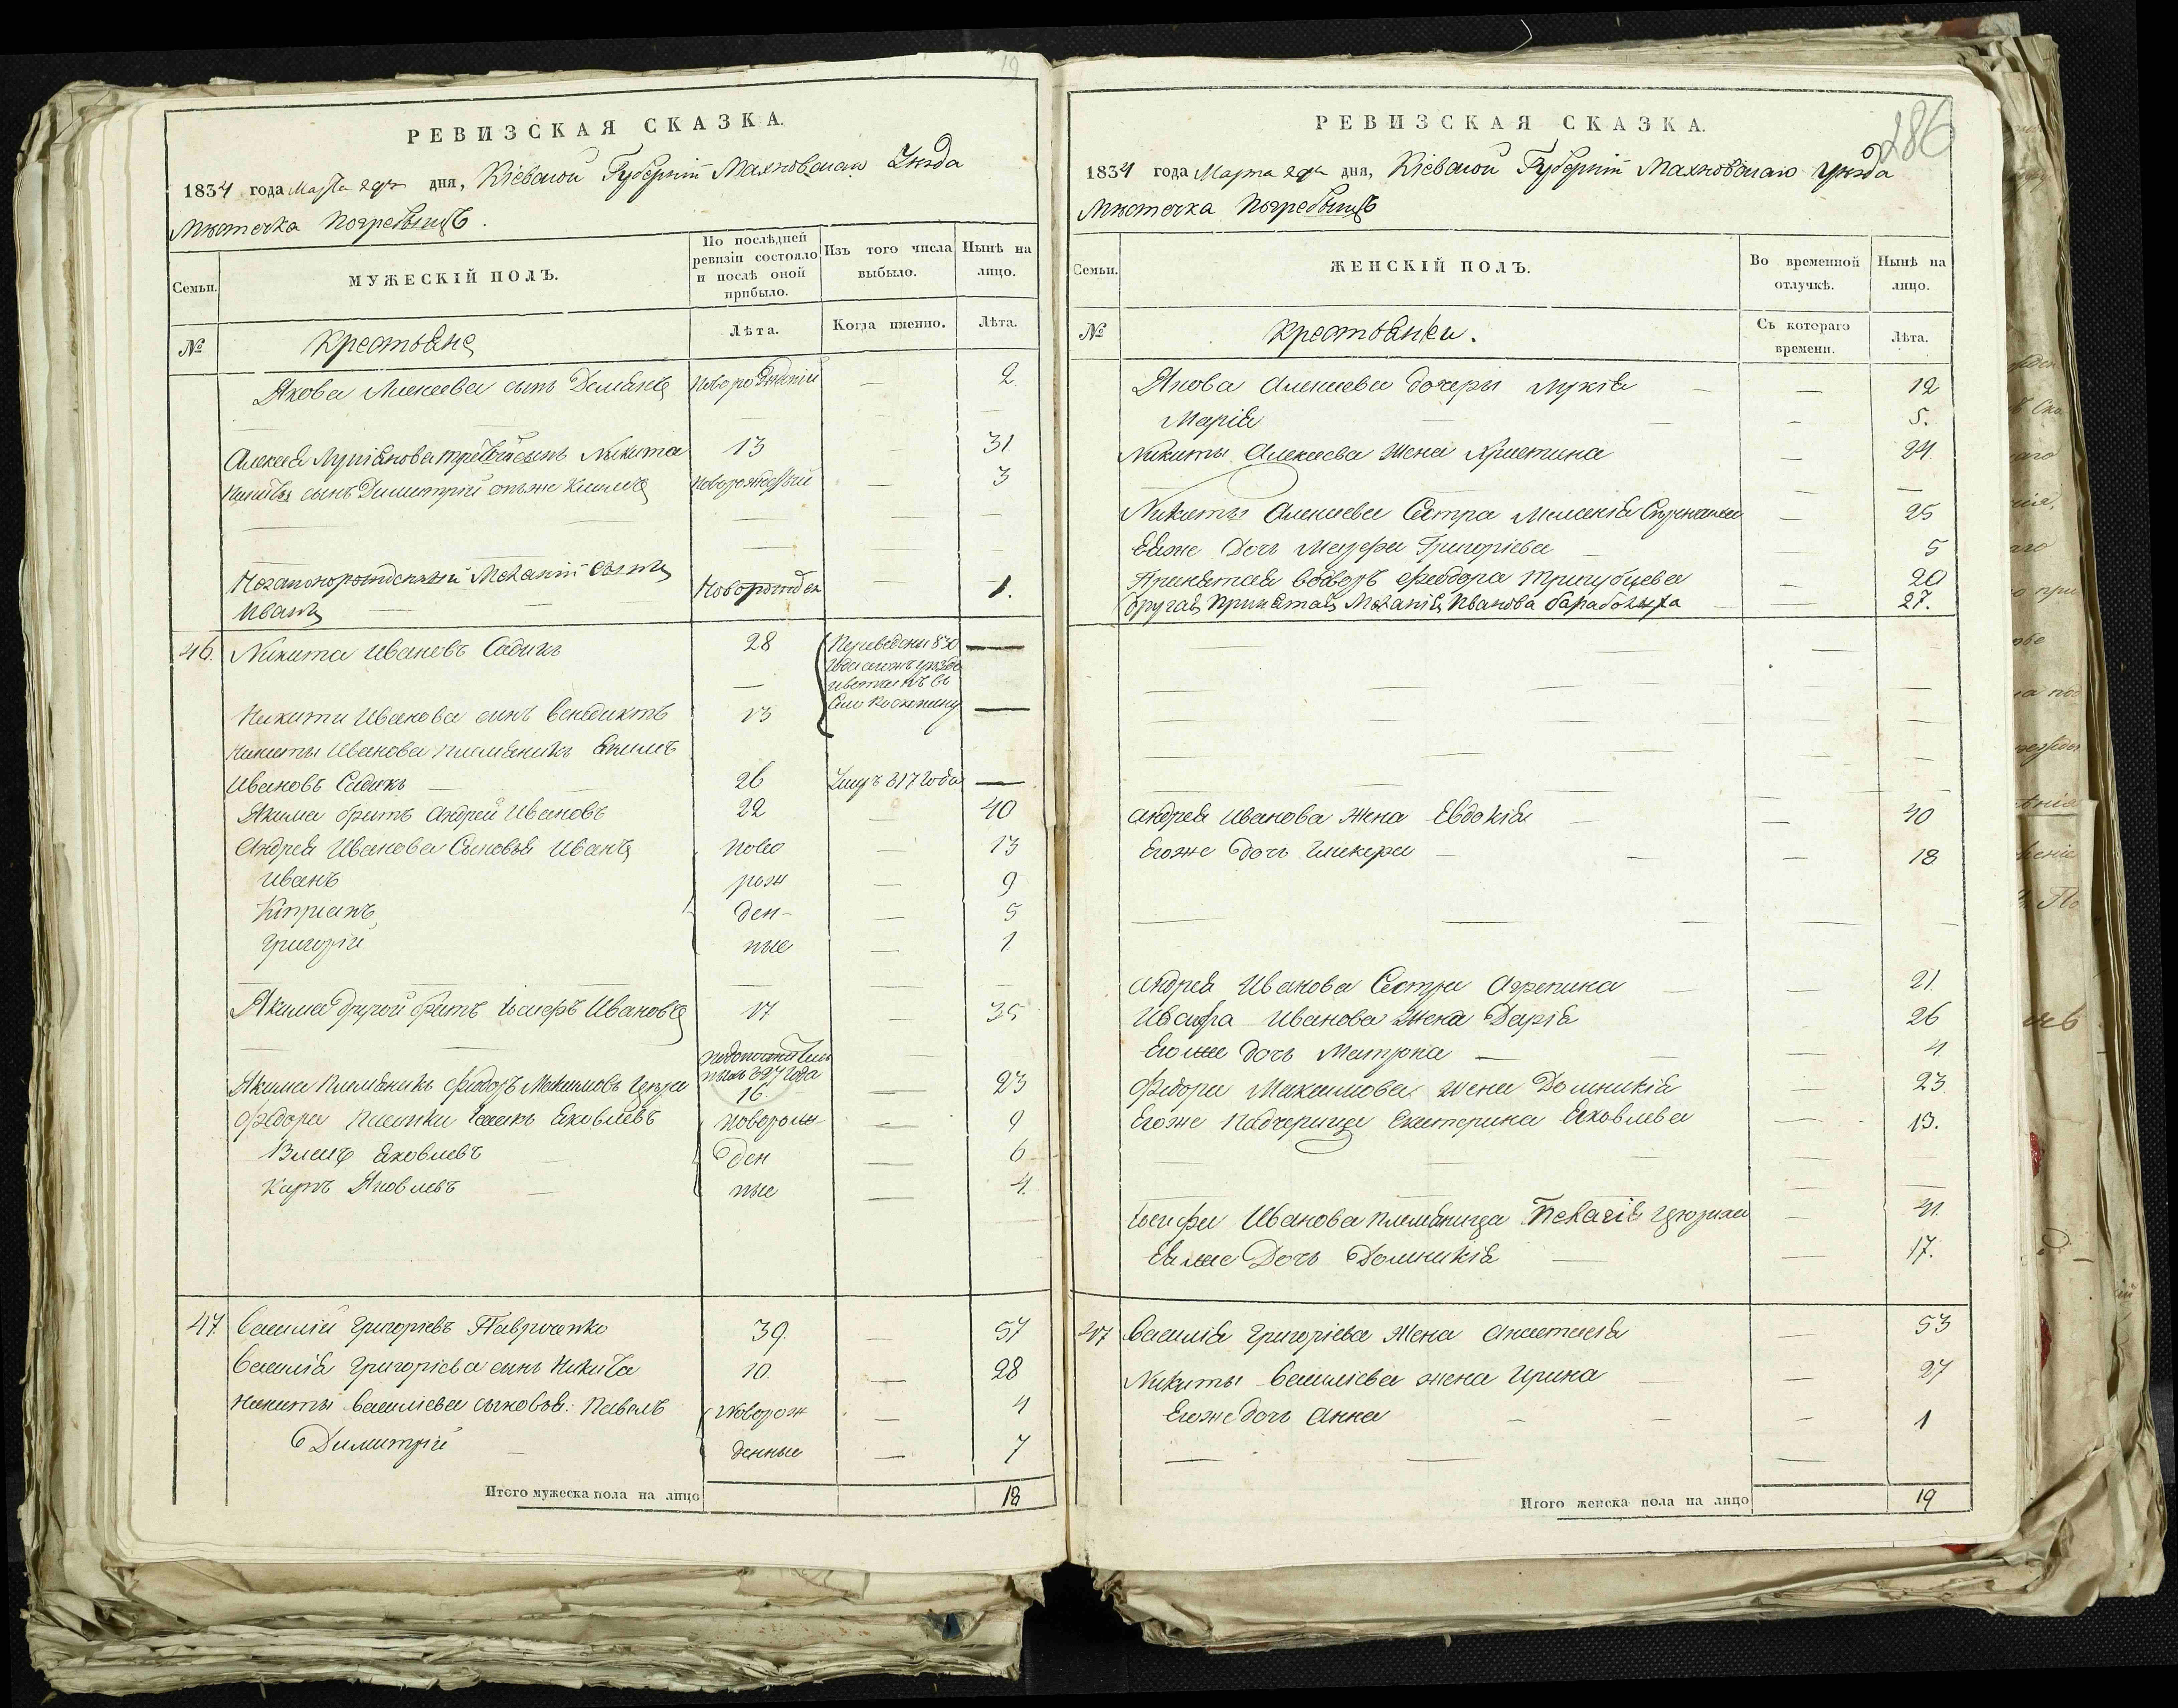 19
РЕВИЗСКАЯ СКАЗКА.
1834 года Марта дня, Кіевской Губерніи Махновскаго Уѣзда
Мѣстечка Погребыщъ.
Семьи.
МУЖЕСКІЙ ПОЛЪ.
По послѣдней ревизіи состояло и послѣ оной прибыло.
Изъ того числа выбыло.
Нынѣ на лицо.
№
Крестьяне
Лѣта.
Когда именно.
Лѣта.
Якова Алексеева сынъ Демянъ Новорожденій — 2.
Алексея Лукіянова третій сынъ Никита 13 31.
Никиты сынъ Димитрій Новорожденій — 3
Незаконорожденный Меланіи сынъ
Иванъ — — Новорожден — 1.
46. Никита Ивановъ Садикъ 28 Переведены 830 —
Никити Иванова сынъ Венедиктъ 13 —
Никиты Иванова племяникъ Якимъ
Ивановъ Садикъ — 26 Умеръ 817 года —
Якима братъ Андрей Ивановъ 22 — 40
Андрея Иванова Сыновья Иванъ Ново — 13
Иванъ рож — 9
Кипріанъ ден- — 5
Григорій ные — 1
Якима другой братъ Іосифъ Ивановъ 17 — 35
Якима племяникъ Федоръ Максимовъ 827 года 16. — 23
Федора Яковлевъ Новорож — 9
Власъ Яковлевъ — ден — 6
Карпъ Яковлевъ — ные — 4.
47. Василій Григорьевъ Гаврченко 39. — 57
Василія Григоріева сынъ Никита 10. — 28
Никиты Василіева сыновья: Павелъ Новорож — 11
Димитрій — денные — 7
Итого мужеска пола на лицо 18
286
РЕВИЗСКАЯ СКАЗКА.
1834 года Марта дня, Кіевской Губерніи Махновскаго уѣзда
Мѣстечка Погребыщъ
Семьи.
ЖЕНСКІЙ ПОЛЪ.
Во временной отлучкѣ.
Нынѣ на лицо.
№
Крестьянки.
Съ котораго времени.
Лѣта.
Якова Алексеева дочери Лукія — — 12
Марія — — — 5.
Никиты Алексеева жена Христина — 24
Никиты Алексеева Сестра Меланія — 25
Еяже дочь Григоріева — — 5
Принятая водворъ Феодора — 20
Другая принятая Меланія Иванова — — 27.
Андрея Иванова жена Евдокія — — 40
Егоже дочь Гликера — — — 18
Андрея Иванова Сестра Агрепина — — 21.
Іосифа Иванова жена Дарія — 26
Егоже дочь Матрона — — — 4
Федора Максимова жена Домникія — 23
Егоже падчерица Екатерина Яковлева — 13.
Іосифа Иванова племяница Пелагія — 41.
Еяже Дочь Домникія — — 17.
47 Василія Григоріева Жена Анастасія — 53
Никиты Василіева жена Ирина — — 27
Егоже дочь Анна — — — 1
Итого женска пола на лицо 19